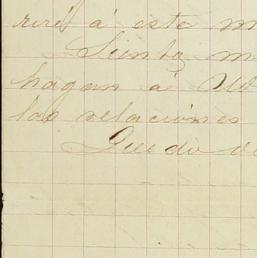 riré á este m
Siento m
hagan a
las relaciones
Quedo d